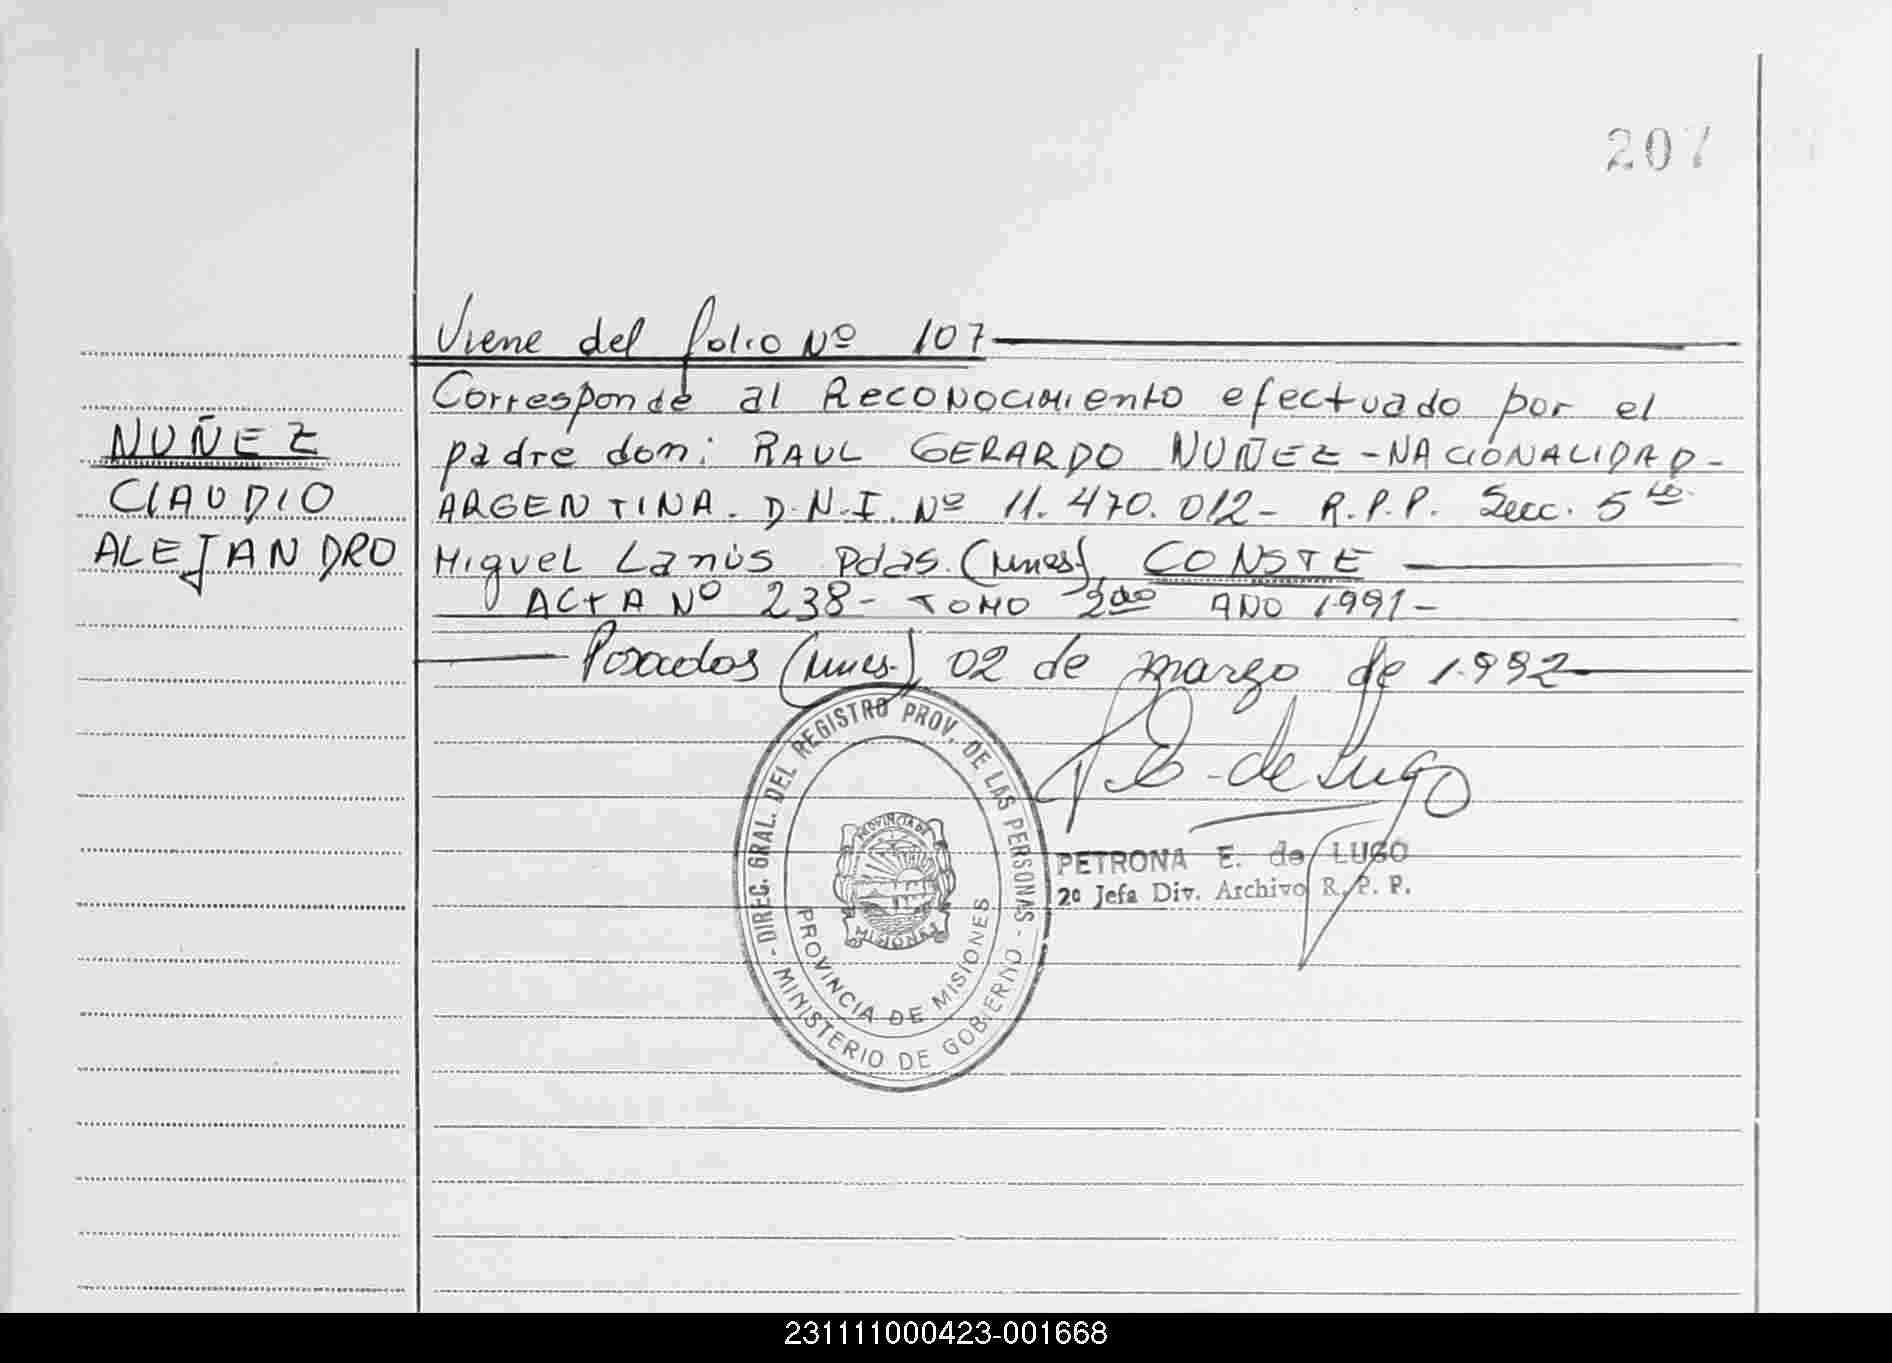 207
Viene del folio Nº 107
Corresponde al Reconocimiento efectuado por el
NUÑEZ
padre don: RAUL GERARDO NUÑEZ - NACIONALIDAD -
CLAUDIO
ARGENTINA. D.N.I. Nº 11.470.012 - R.P.P. Secc. 5ta
ALEJANDRO
Miguel Lanús Pdas. (Mnes). CONSTE
ACTA Nº 238 - TOMO 2do AÑO 1991 -
Posadas (Mnes.) 02 de marzo de 1.992
P.E. de Lugo
- DIREC. GRAL. DEL REGISTRO PROV. DE LAS PERSONAS -
MINISTERIO DE GOBIERNO
PROVINCIA DE MISIONES
PROVINCIA DE
MISIONES
PETRONA E. de LUGO
2ª Jefa Div. Archivo R. P. P.
231111000423-001668